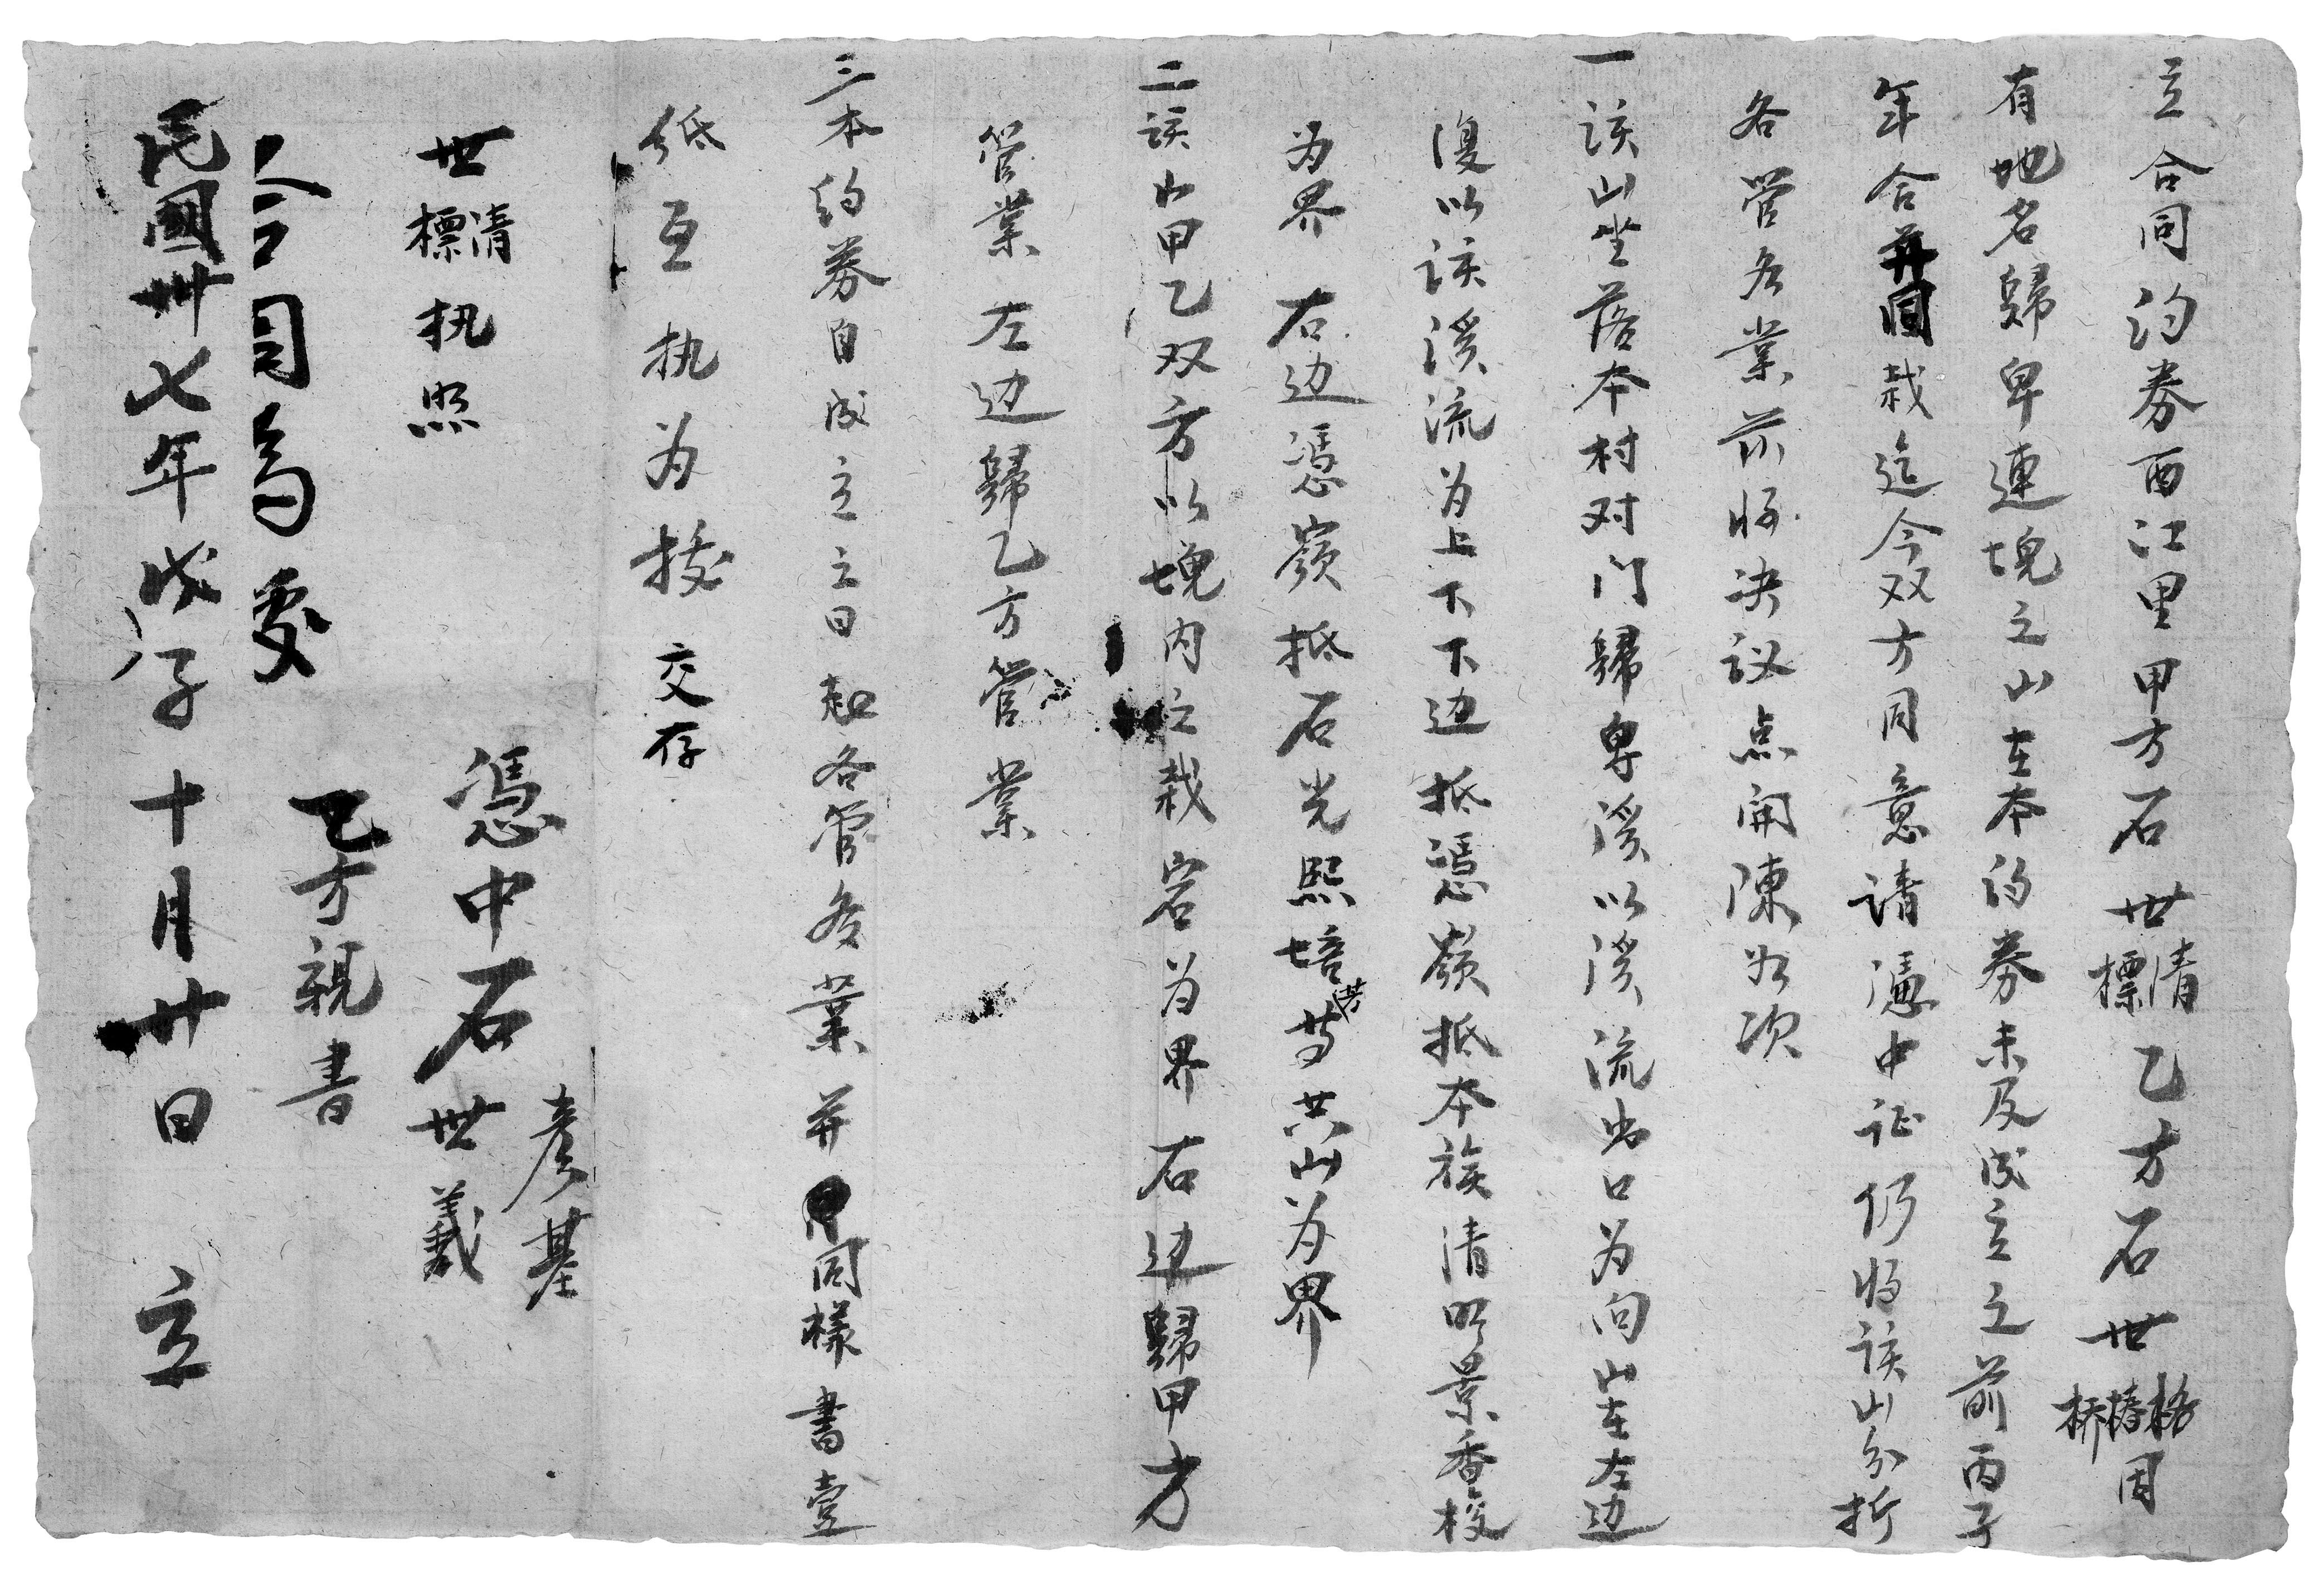 立合同约券西江里甲方石世清標乙方石世格椿桥因
有地名歸卑連塊之山在本约券未及成立之前丙子
年合并同栽迄今双方同意请憑中证仍将该山分折
各管各業亦将决议点開陳为次
一该山坐落本村对门歸卑溪以溪流出口为向山在左边
復以该溪流为上下下边抵憑嶺抵本族清明景香校
为界右边憑嶺抵石光熙培芳等共山为界
二该山甲乙双方以塊内之栽岩为界右边歸甲方
管業左边歸乙方管業
三本约券自成立之日起各管各業并同樣書壹
纸互执为按交存
世清標执照
憑中石彦基世義
乙方親書
合同為處
民國卅七年戊子十月廿日立